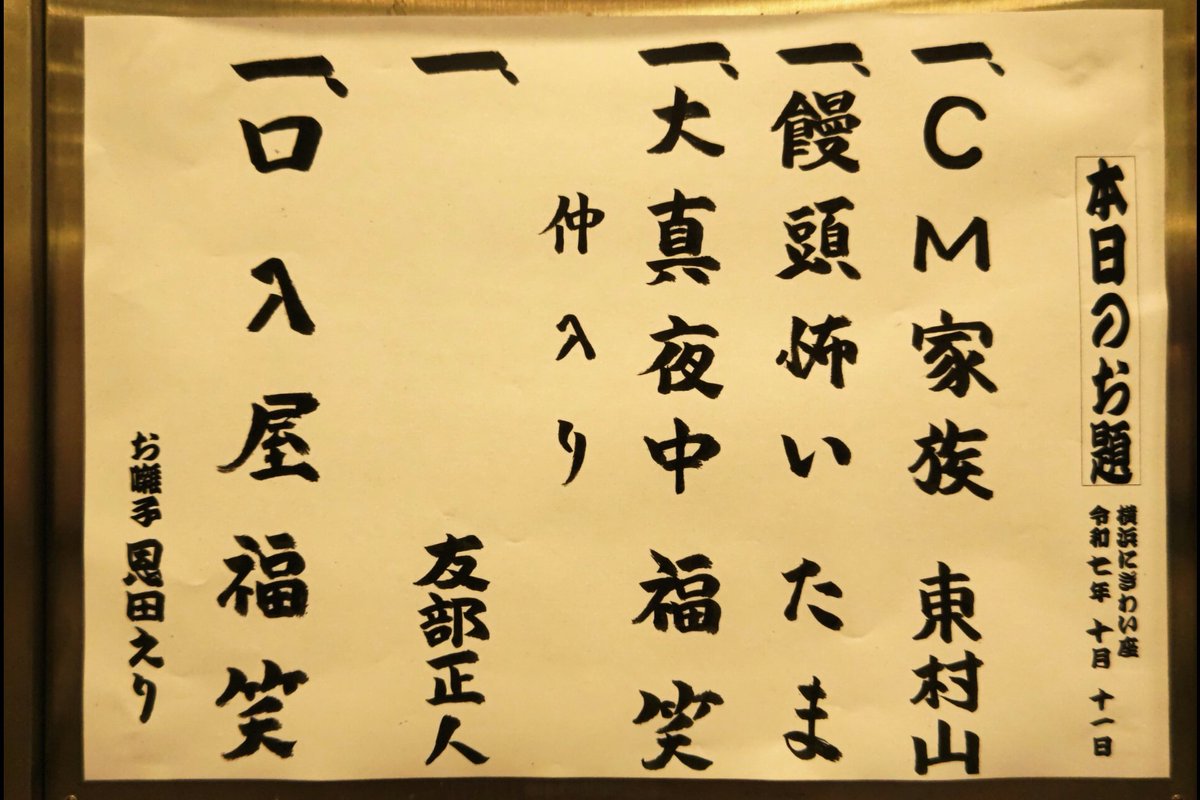 本日のお題
横浜にぎわい座
令和七年 十月 十一日
一、CM家族 東村山
一、饅頭怖い たま
一、大真夜中 福笑
仲入り
一、 友部正人
一、口入屋 福笑
お囃子 恩田えり